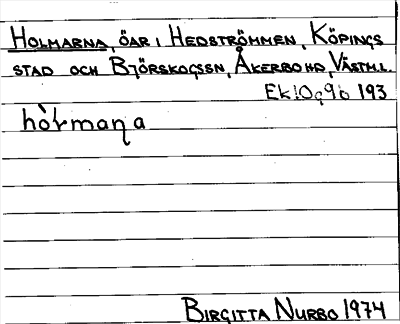 HOLMARNA, ÖAR I HEDSTRÖMMEN, KÖPINGS
STAD OCH BJÖRSKOGSSN, ÅKERBO HD, VÄSTML.
Ek 10g9b 193
hòɽmaɳa
BIRGITTA NURBO 1974